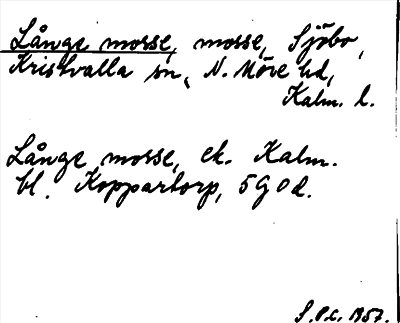 Långe mosse, mosse, Sjöbo,
Kristvalla sn, N. Möre hd,
Kalm. l.
Långe mosse, ek. Kalm.
bl. Koppartorp, 5G0d.
S.P.C. 1957.